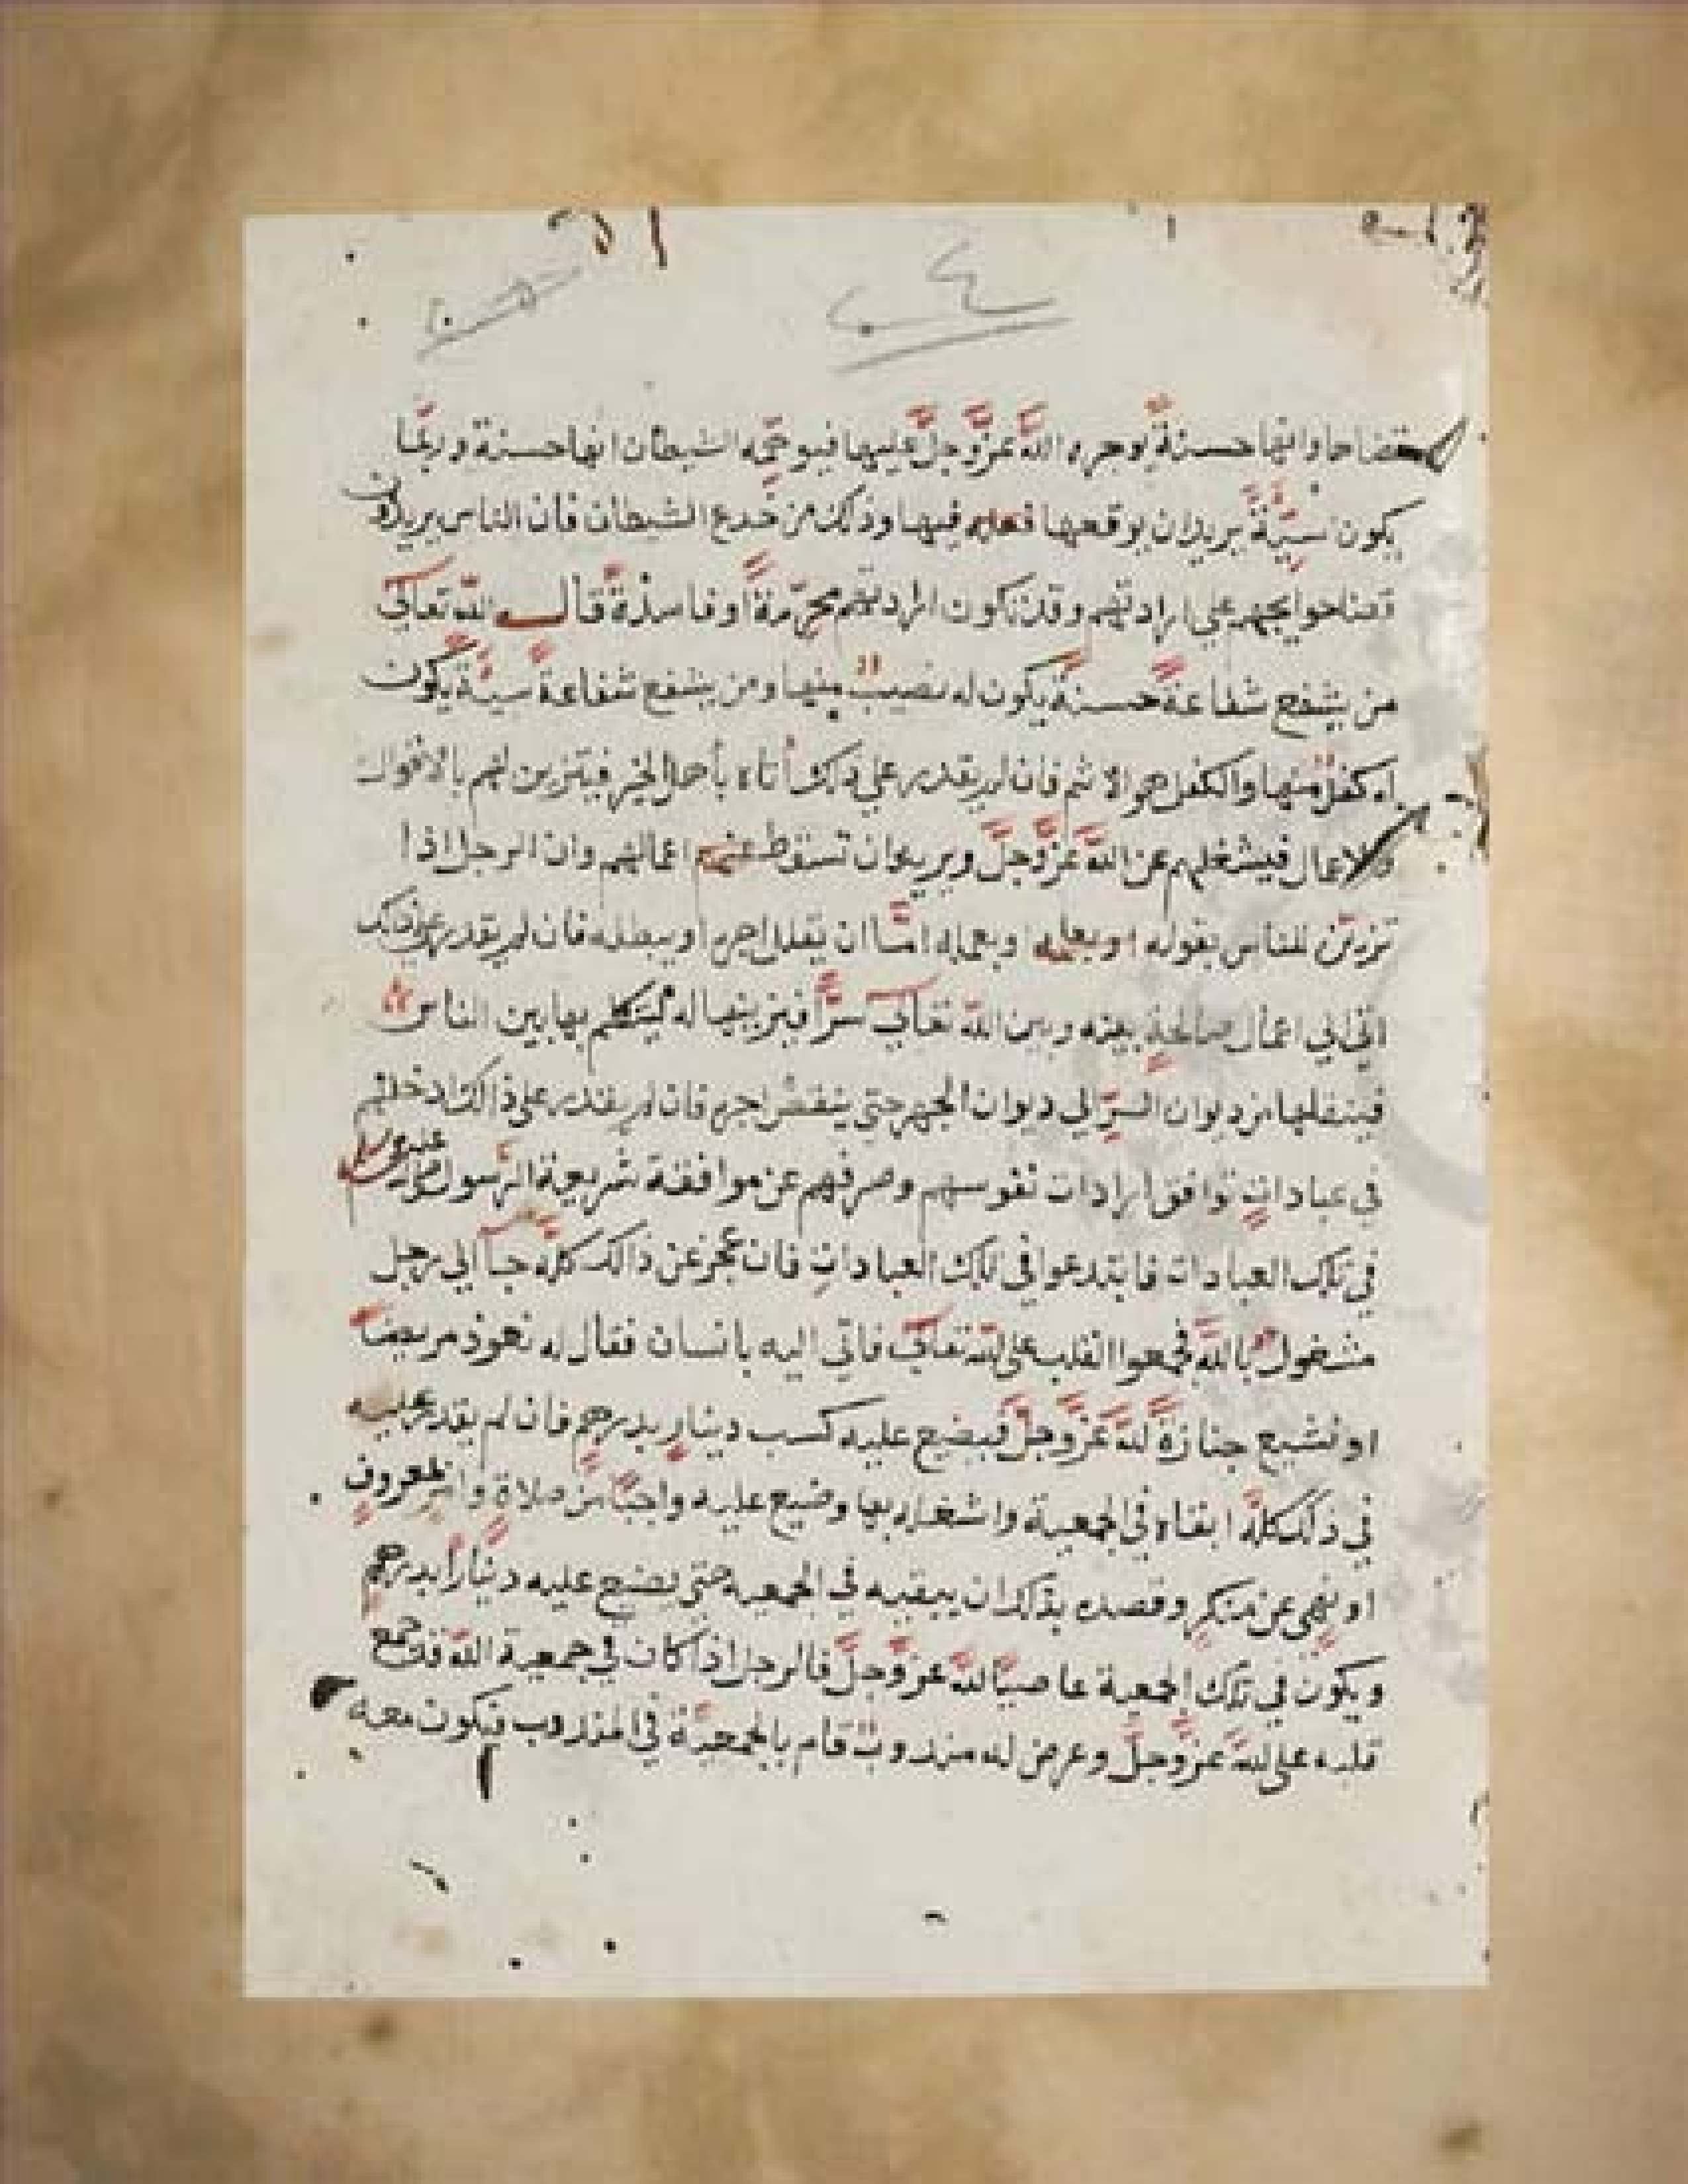 بقضاحا وانها حسنة يوجره الله عز وجل عليها فيوهمه الشيطان انها حسنة وربما
يكون سيئة يريد ان يوقعها فعله فيها وذلك من خدع الشيطان فان الناس يريدون
قضا حوايجهم على ارادتهم وقد تكون ارادتهم محرمة او فاسدة قال الله تعالى
من يشفع شفاعة حسنة يكون له نصيب منها ومن يشفع شفاعة سيئة يكون
له كفل منها والكفل هو الاثم فان لم يقدر على ذلك أتاه بأهل الخير فيتزين لهم بالاقوال
والاعمال فيشغلهم عن الله عز وجل ويريد ان تسقط عنهم اعمالهم وان الرجل اذا
تزين للناس بقوله او بعمله اما ان يقلل اجره او يبطله فان لم يقدر على ذلك
اتى الي اعمال صالحة بينه وبين الله تعالى سرا فيزينها له ليتكلم بها بين الناس
فينقلها من ديوان السر الي ديوان الجهر حتى ينقص اجره فان لم يقدر على ذالك ادخلهم
في عبادات توافق ارادات نفوسهم وصرفهم عن موافقة شريعة الرسول صلى الله عليه وسلم
في تلك العبادات فابتدعوا في تلك العبادات فان عجز عن ذالك كله جآ الي رجل
مشغول بالله فجمعوا القلب على الله تعالى فاتى اليه بانسان فقال له نعود مريضا
او نشيع جنازة لله عز وجل فيضيع عليه كسب دينار بدرهم فان لم يقدر عليه
في ذلك كله ابقاه في الجمعية واشغله بها وضيع عليه واجبا من صلاة وامر بمعروف
او نهى عن منكر وقصده بذلك ان يبقيه في الجمعية حتى يضيع عليه دينارا بدرهم
ويكون في تلك الجمعية عاصيا لله عز وجل فالرجل اذا كان في جمعية الله قد جمع
قلبه على الله عز وجل وعرض له مندوب قام بالجمعية في المندوب فتكون معه